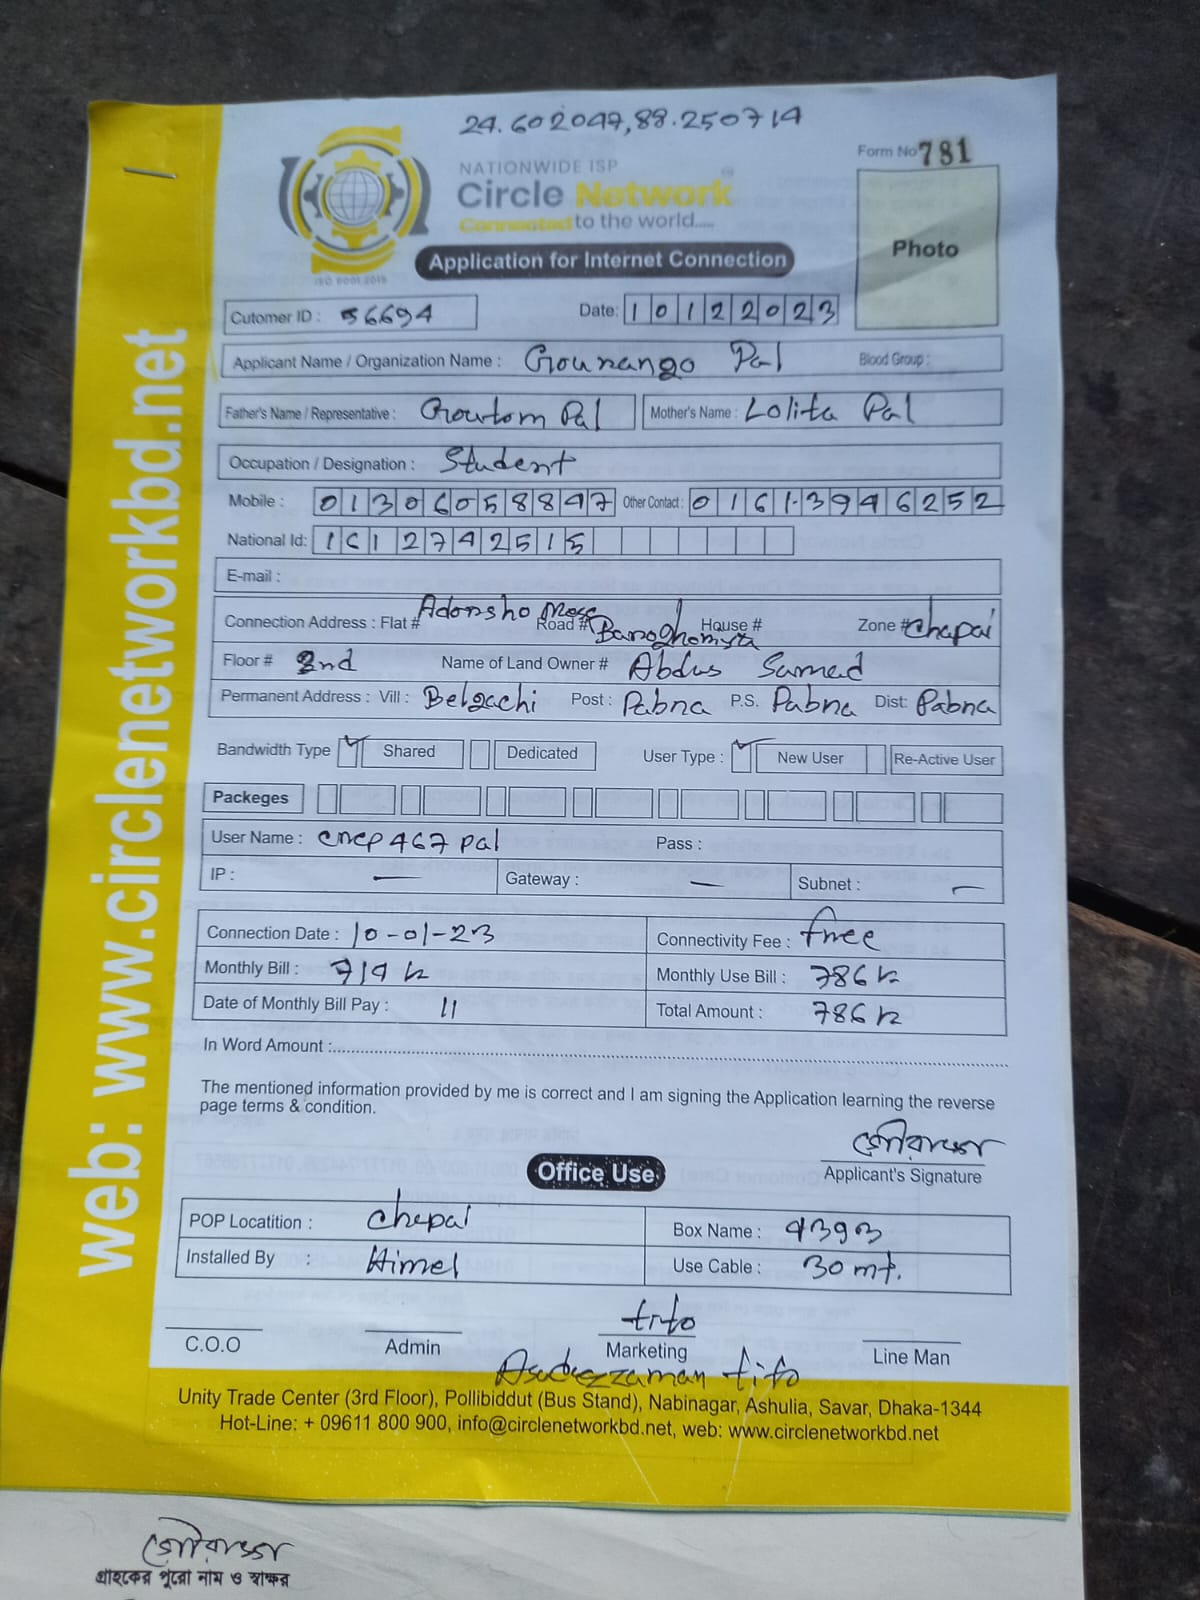 24.602047,88.250714
Form No 781
NATIONWIDE ISP
Circle Network
Connected to the world.....
ISO 9001:2015
Application for Internet Connection
Photo
Cutomer ID : 56694 Date: 10122023
Applicant Name / Organization Name : Gourango Pal Blood Group :
Father's Name / Representative : Goutom Pal Mother's Name : Lolita Pal
Occupation / Designation : Student
Mobile : 01306058847 Other Contact : 01613946252
National Id: 1612742515
E-mail :
Connection Address : Flat # Adorsho Mess Road # Baroghomyta House # Zone # Chapai
Floor # 2nd Name of Land Owner # Abdus Samad
Permanent Address : Vill : Belgachi Post : Pabna P.S. Pabna Dist: Pabna
Bandwidth Type Shared Dedicated User Type : New User Re-Active User
Packeges
User Name : cncp467pal Pass :
IP : — Gateway : — Subnet : —
Connection Date : 10-01-23 Connectivity Fee : free
Monthly Bill : 714 tk Monthly Use Bill : 786 tk
Date of Monthly Bill Pay : 11 Total Amount : 786 tk
In Word Amount :
The mentioned information provided by me is correct and I am signing the Application learning the reverse
page terms & condition.
গৌরাঙ্গ
Applicant's Signature
Office Use
POP Locatition : Chapai Box Name : 4393
Installed By : Himel Use Cable : 30 mt.
tito
C.O.O Admin Marketing Line Man
Asaduzzaman tito
Unity Trade Center (3rd Floor), Pollibiddut (Bus Stand), Nabinagar, Ashulia, Savar, Dhaka-1344
Hot-Line: + 09611 800 900, info@circlenetworkbd.net, web: www.circlenetworkbd.net
web: www.circlenetworkbd.net
গৌরাঙ্গ
গ্রাহকের পুরো নাম ও স্বাক্ষর